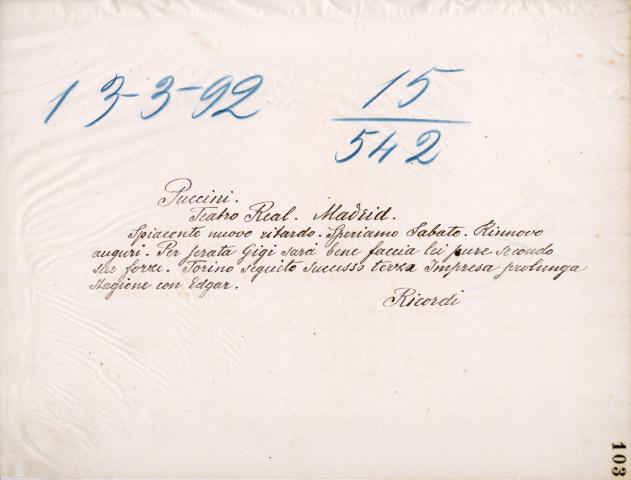 13-3-92
15
542
Puccini.
Teatro Real. Madrid.
Spiacente nuovo ritardo. Speriamo Sabato. Rinnovo
auguri. Per serata Gigi sarà bene faccia lei pure secondo
sue forze. Torino seguito successo terza Impresa prolunga
stagione con Edgar.
Ricordi
103